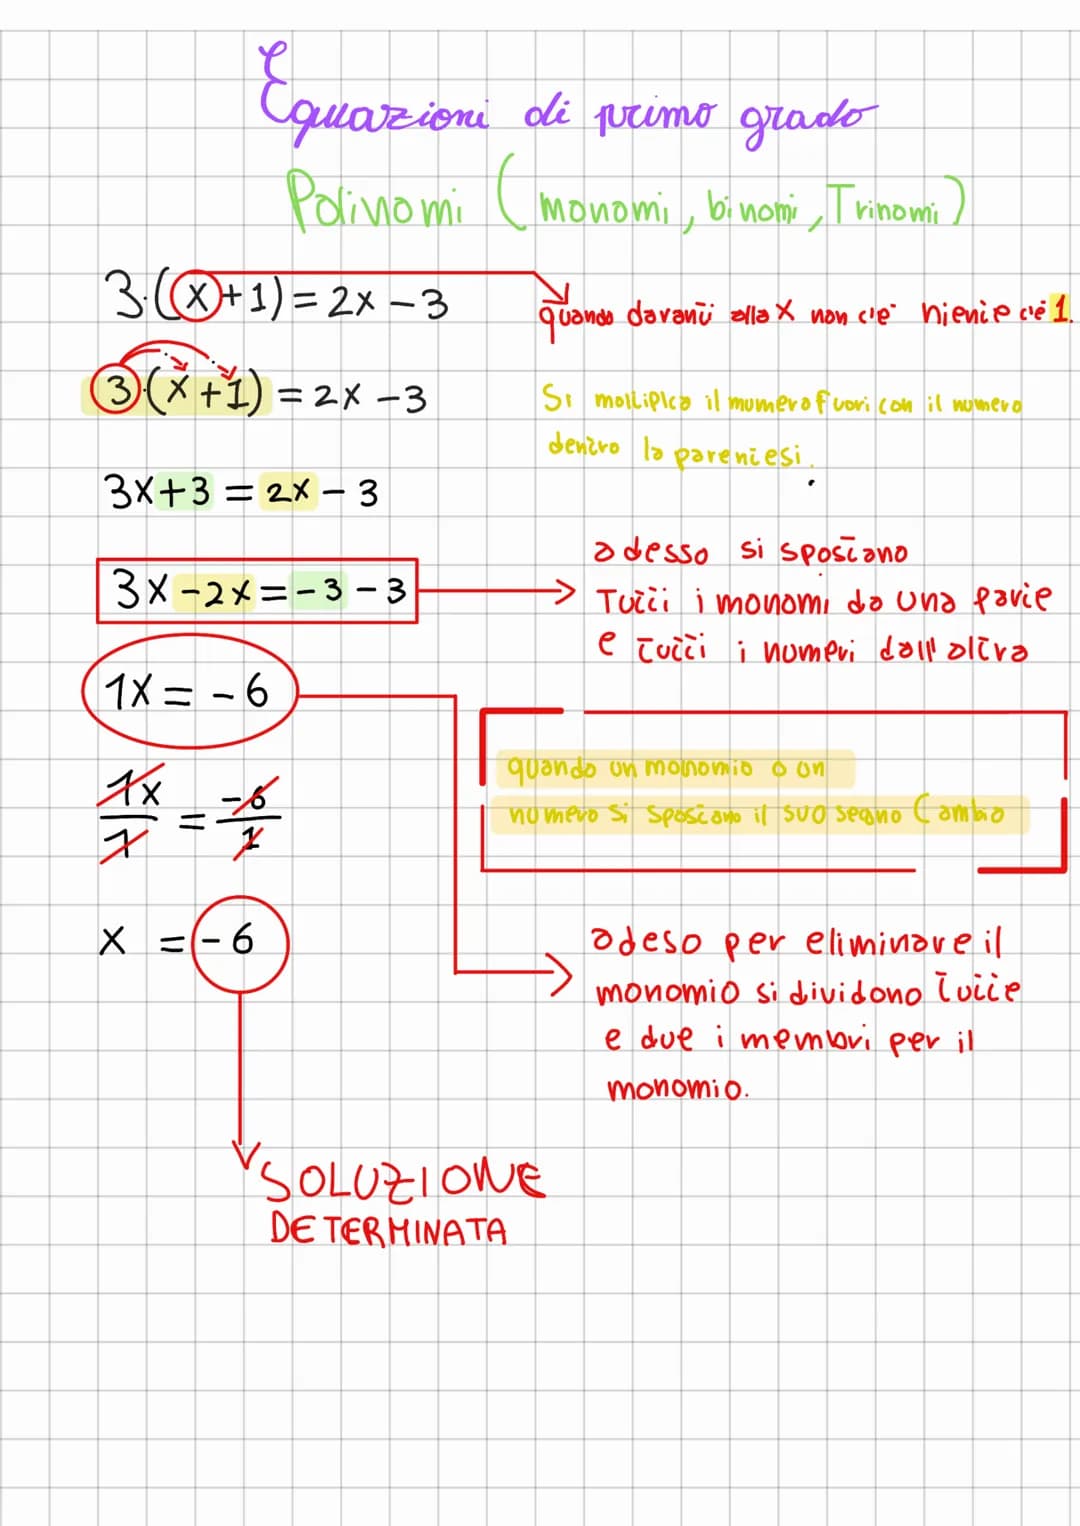 Equazioni di primo grado
Polinomi (monomi, binomi, Trinomi)
3·(x+1)=2x-3
quando davanti alla X non c'è niente c'è 1.
3·(x+1)=2x-3
Si moltiplica il numero fuori con il numero
dentro la parentesi.
3x+3=2x-3
adesso si spostano
3x-2x=-3-3
Tutti i monomi da una parte
e tutti i numeri dall'altra
1x=-6
quando un monomio o un
numero si spostano il suo segno Cambia
1x/1=-6/1
x=-6
adeso per eliminare il
monomio si dividono tutte
e due i membri per il
monomio.
SOLUZIONE
DETERMINATA